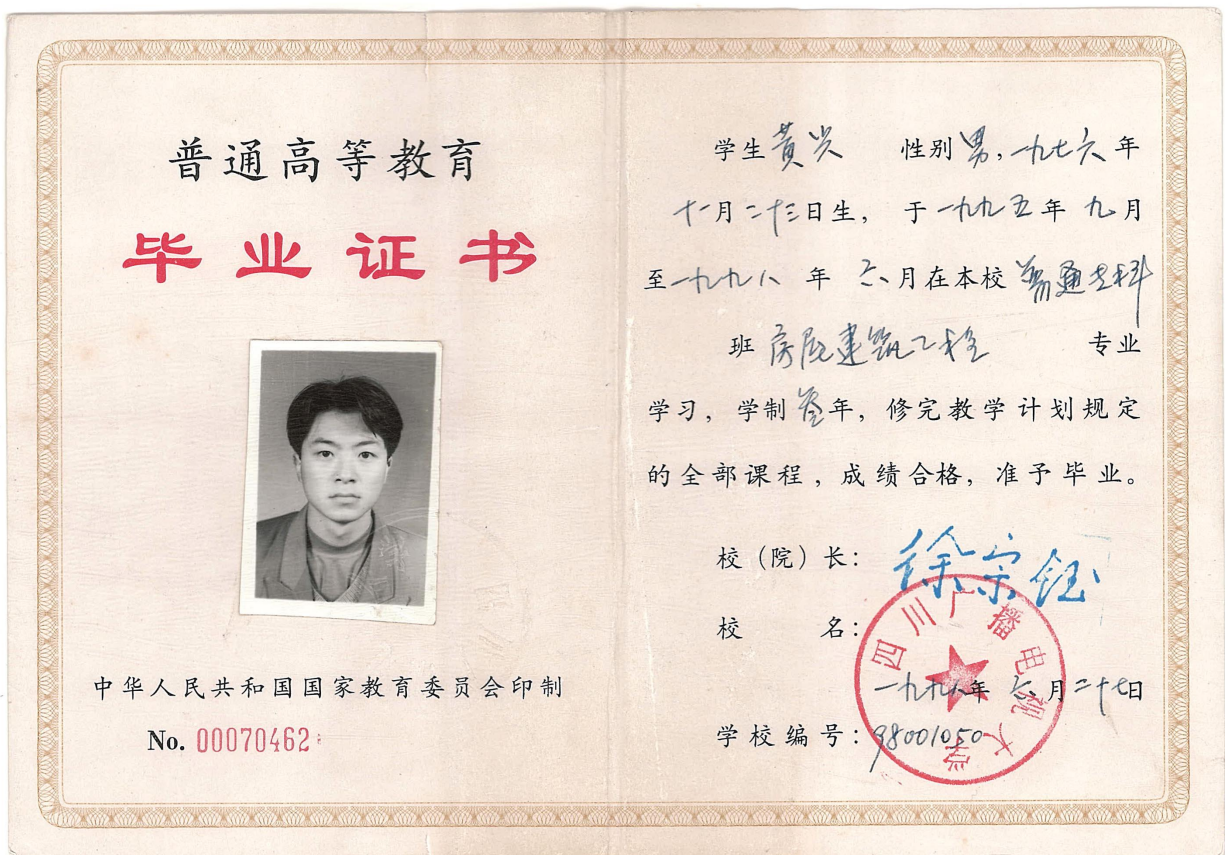 普通高等教育
毕业证书
中华人民共和国国家教育委员会印制
No. 00070462
学生黄兴 性别男,一九七六年
十一月二十三日生, 于一九九五年九月
至一九九八年六月在本校普通专科
班房屋建筑工程专业
学习, 学制叁年, 修完教学计划规定
的全部课程, 成绩合格, 准予毕业。
校(院)长: 徐宗钰
校名:
四川广播电视大学
一九九八年六月二十七日
学校编号: 98001050